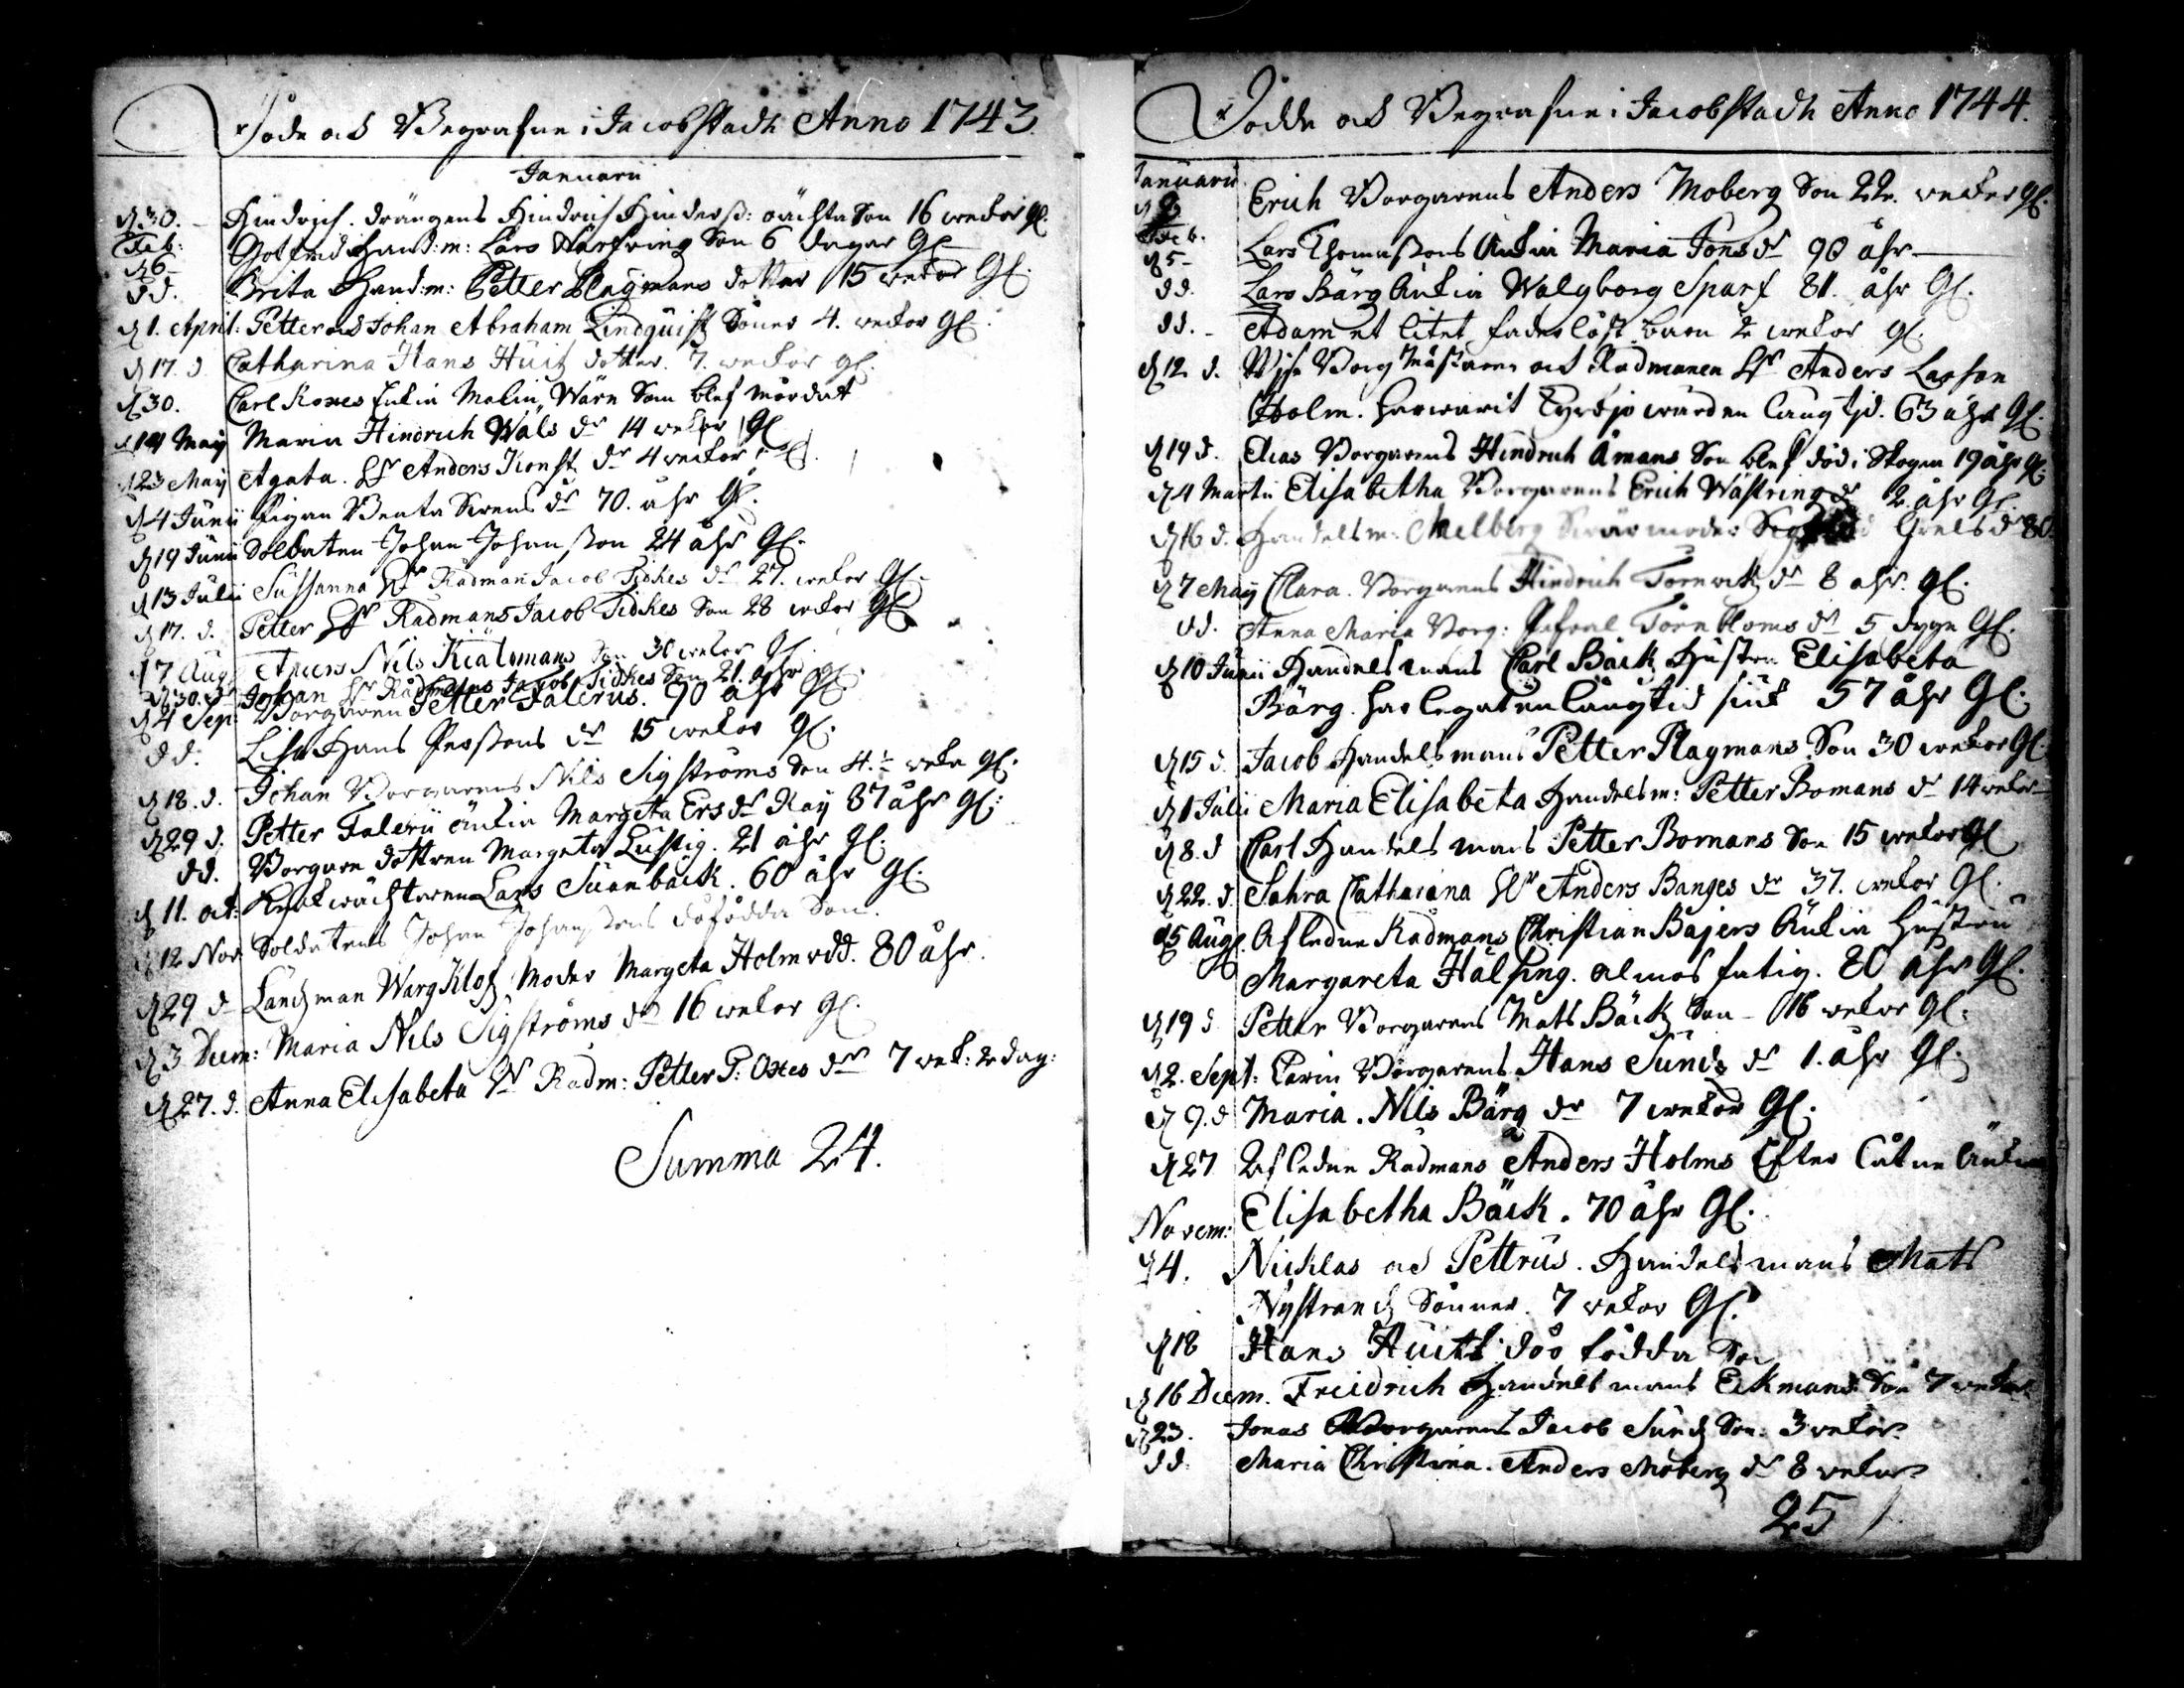 Döde och Begrafne i Jacobstadh Anno 1743.
Januarii
d 30. Hindrich. drängens Hindrich Hinderss: oächta Son 16 wekor gl.
Feb:
d 6 Gotfrid Hand:m: Lars Wästring Son 6 dagar Gl
dd. Brita Hand:m: Petter Plagmans dotter 15 wekor Gl.
d 1. April: Petter och Johan Abraham Lindquist Söner 4. wekor gl.
d 17. d. Catharina Hans Huit dotter. 7. wekor gl.
d 30. Carl Roxes Enkia Malin Wärn Som blef mördat
d 14 Maÿ Maria Hindrich Wäls dr 14 wekor Gl
d 23 Maÿ Agata. Hr Anders Konst dr 4 wekor Gl.
d 4 Junii Pigan Beata Svens dr 70. åhr Gl.
d 19 Junii Soldaten Johan Johansson 24 åhr Gl.
d 13 Julii Sussanna Hr Rådman Jacob Tidkes dr 27. wekor Gl.
d 17. d. Petter Hr Rådmans Jacob Tidkes Son 28 wekor Gl.
d 7 Aug Anders Nils Kiälsmans Son 30 wekor Gl.
d 30. d. Johan Hr Rådmans Jacob Tidkes Son 21. åhr gl.
d 4 Sep: Borgaren Petter Falerus. 90 åhr Gl.
dd. Lisa Hans Perssons dr 15 wekor gl.
d 18. d. Johan Borgarens Nils Sigströms Son 4.½ weka gl.
d 29 d. Petter Falerii änkia Margeta Ersdr Kaÿ 87 åhr gl:
dd. Borgare dottren Margeta Lustig. 21 åhr gl.
d 11. oct: wächtaren Lars Suanbäck. 60 åhr Gl.
d 12 Nov Soldatens Johan Johanssons dödfödda Son.
d 29 d Länsman Wargklos Moder Margeta Holm 80 åhr.
d 3 Decem: Maria Nils Sigströms dr 16 wekor gl.
d 27. d. Anna Elisabeta Hr Rådm: Petter P: Oxes dr 7 wek: 2 dag:
Summa 24.
Dödde och Begrafne i Jacobstadh Anno 1744.
Januarii
Erich Borgarens Anders Moberg Son 22. wekor gl.
Feb.
d 5 Lars Thomassons Enkia Maria Jonsdr 90 åhr
dd. Lars Bärg Enkia Walgborg Sparf 81. åhr Gl.
dd. Adam et litet faderlöst barn 2 wekor gl.
d 12. d. Wise Borgmästaren och Rådmannen Hr Anders Larson
Holm. har warit lång tjd. 63 åhr Gl.
d 19 d. Elias Borgarens Hindrich Åmans Son blef död i Skogen 19 åhr gl.
d 4 Martii Elisabetha Borgarens Erich Wästring dr 2. åhr Gl.
d 16 d. Handelsm: Melberg Swärmoder: Grels dr 80.
d 7 Maÿ Clara. Borgarens Hindrich Törnwik dr 8 åhr. gl.
dd. Anna Maria Borg: Törnbloms dr 5 dygn Gl.
d 10 Junii Handelsmans Carl Bäck Hustru Elisabeta
Bärg. har legat en lång tid siuk 57 åhr Gl.
d 15 d. Jacob Handelsmans Petter Plagmans Son 30 wekor Gl.
d 1 Julii Maria Elisabeta Handelsm: Petter Bomans dr 14 wekor
d 8. d Carl Handelsmans Petter Bomans Son 15 wekor Gl
d 22. d. Sahra Catharina Hr Anders Banges dr 37. wekor Gl.
d 5 Aug. Afledne Rådmans Christian Bäjers Enkia Hustru
Margareta Hälsing. almosfatig. 80 åhr Gl.
d 19 d. Petter Borgarens Mats Bäck Son 16 wekor gl.
d 2. Sept: Carin Borgarens Hans Sunds dr 1. åhr Gl.
d 9. d Maria. Nils Bärg dr 7 wekor Gl.
d 27 Afledne Rådmans Anders Holms Efterlåtne Enkia
Elisabetha Bäck. 70 åhr Gl.
Novem:
d 4. Nicklas och Pettrus. Handelsmans Mats
Nystrand Sönner. 7 wekor Gl.
d 18 Hans Huits dödfödda Son
d 16 Decem. Freidrich Handelsmans Eckmans Son 7 wekor
d 23. Jonas Borgarens Jacob Sund Son. 3 wekor
dd. Maria Christina. Anders Moberg dr 8 wekor
25